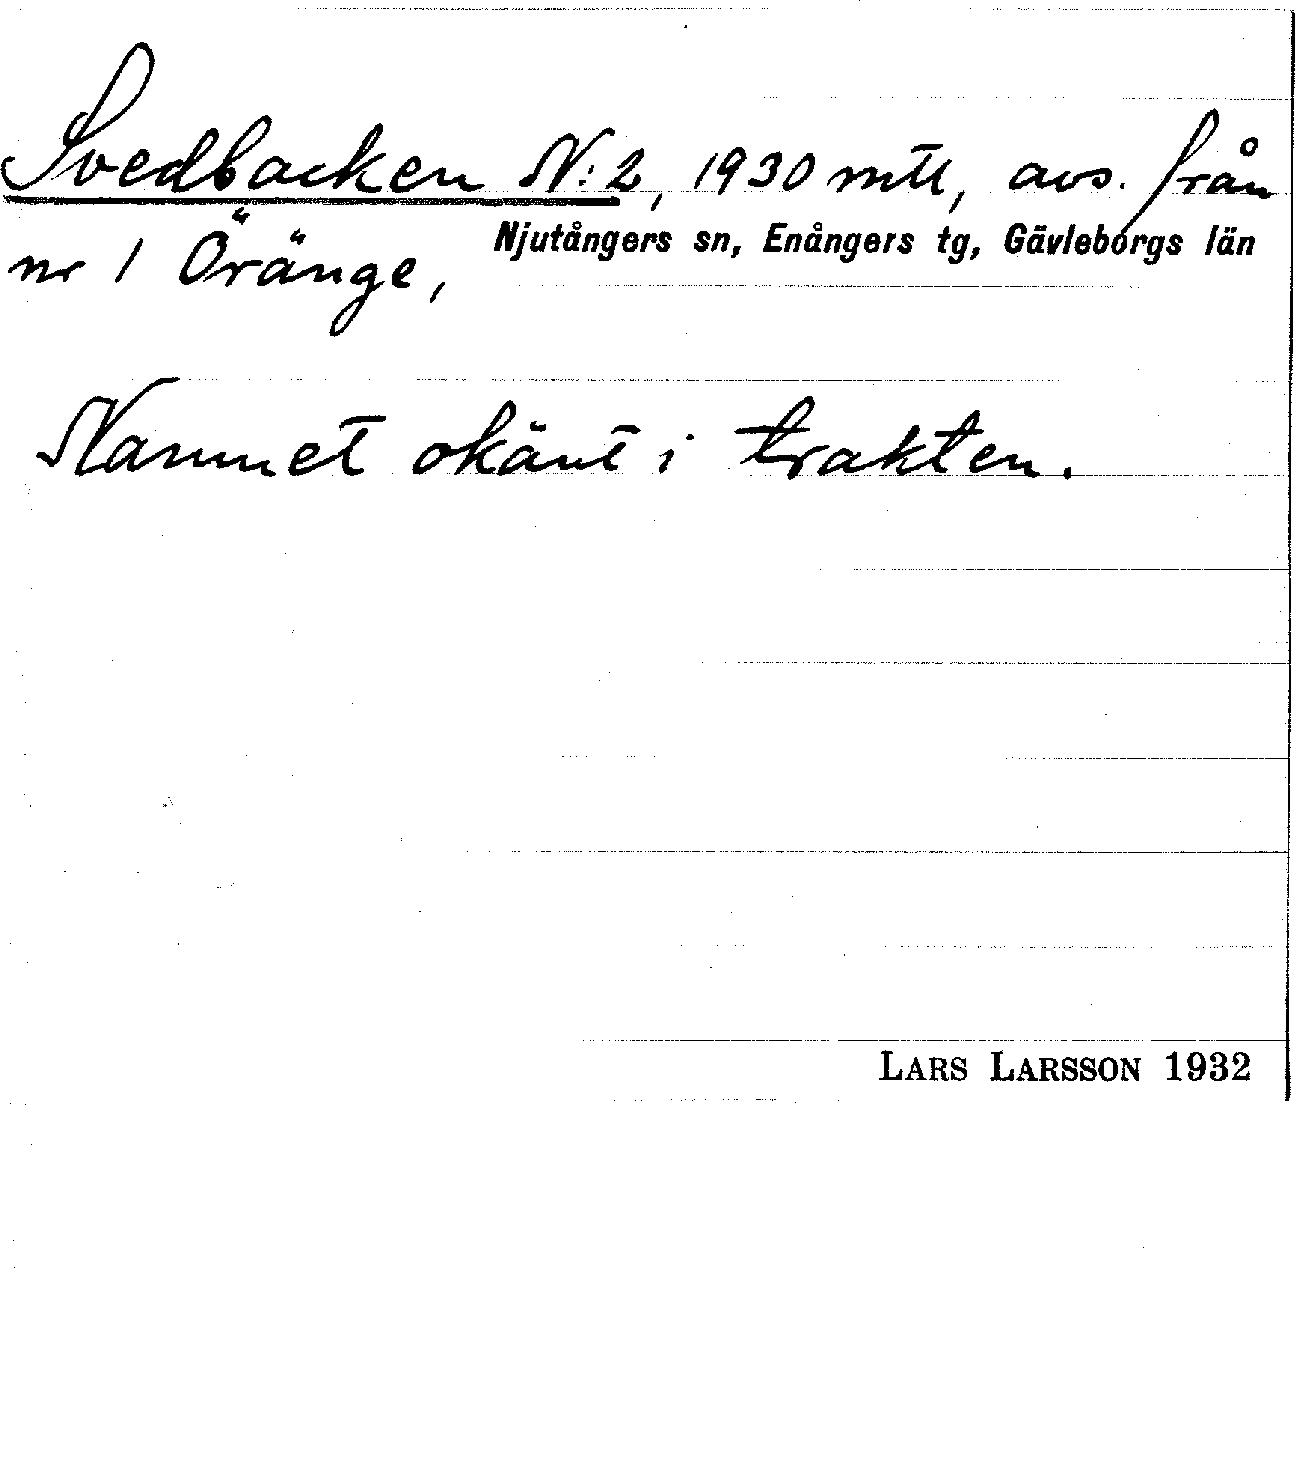 Svedbacken N:2, 1930 mtl, avs. från
nr 1 Öränge, Njutångers sn, Enångers tg, Gävleborgs län
Namnet okänt i trakten.
LARS LARSSON 1932